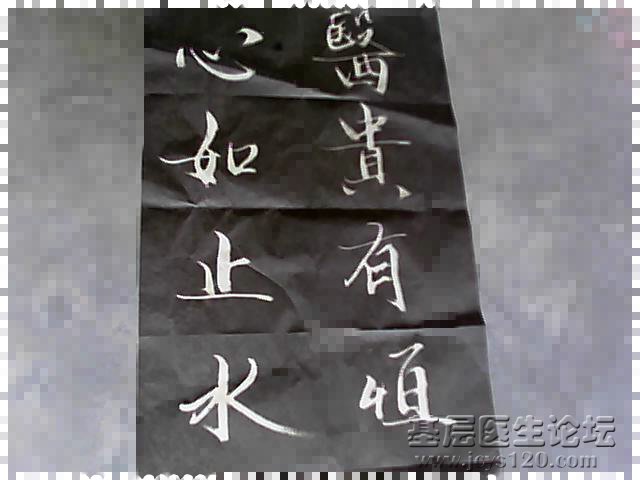 醫貴有恒
心如止水
基层医生论坛
www.jcys120.com